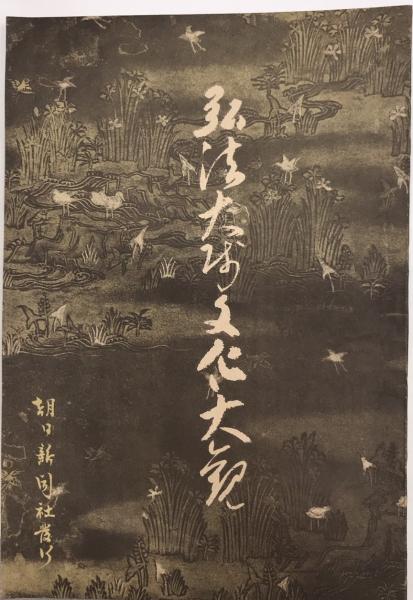 弘法大師文化大観
朝日新聞社発行